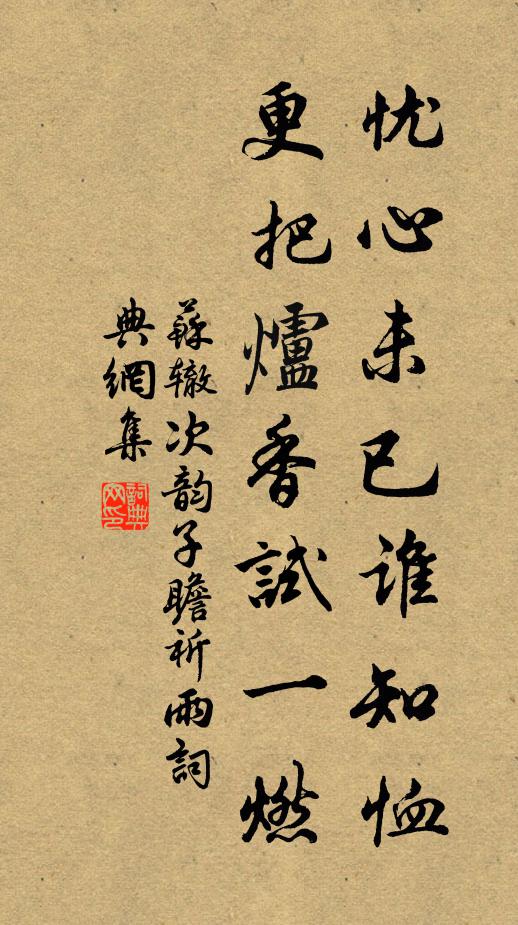 忧心未已谁知恤
更把爐香試一燃
蘇辙次韵子瞻祈雨詞
典網集
詞典网印